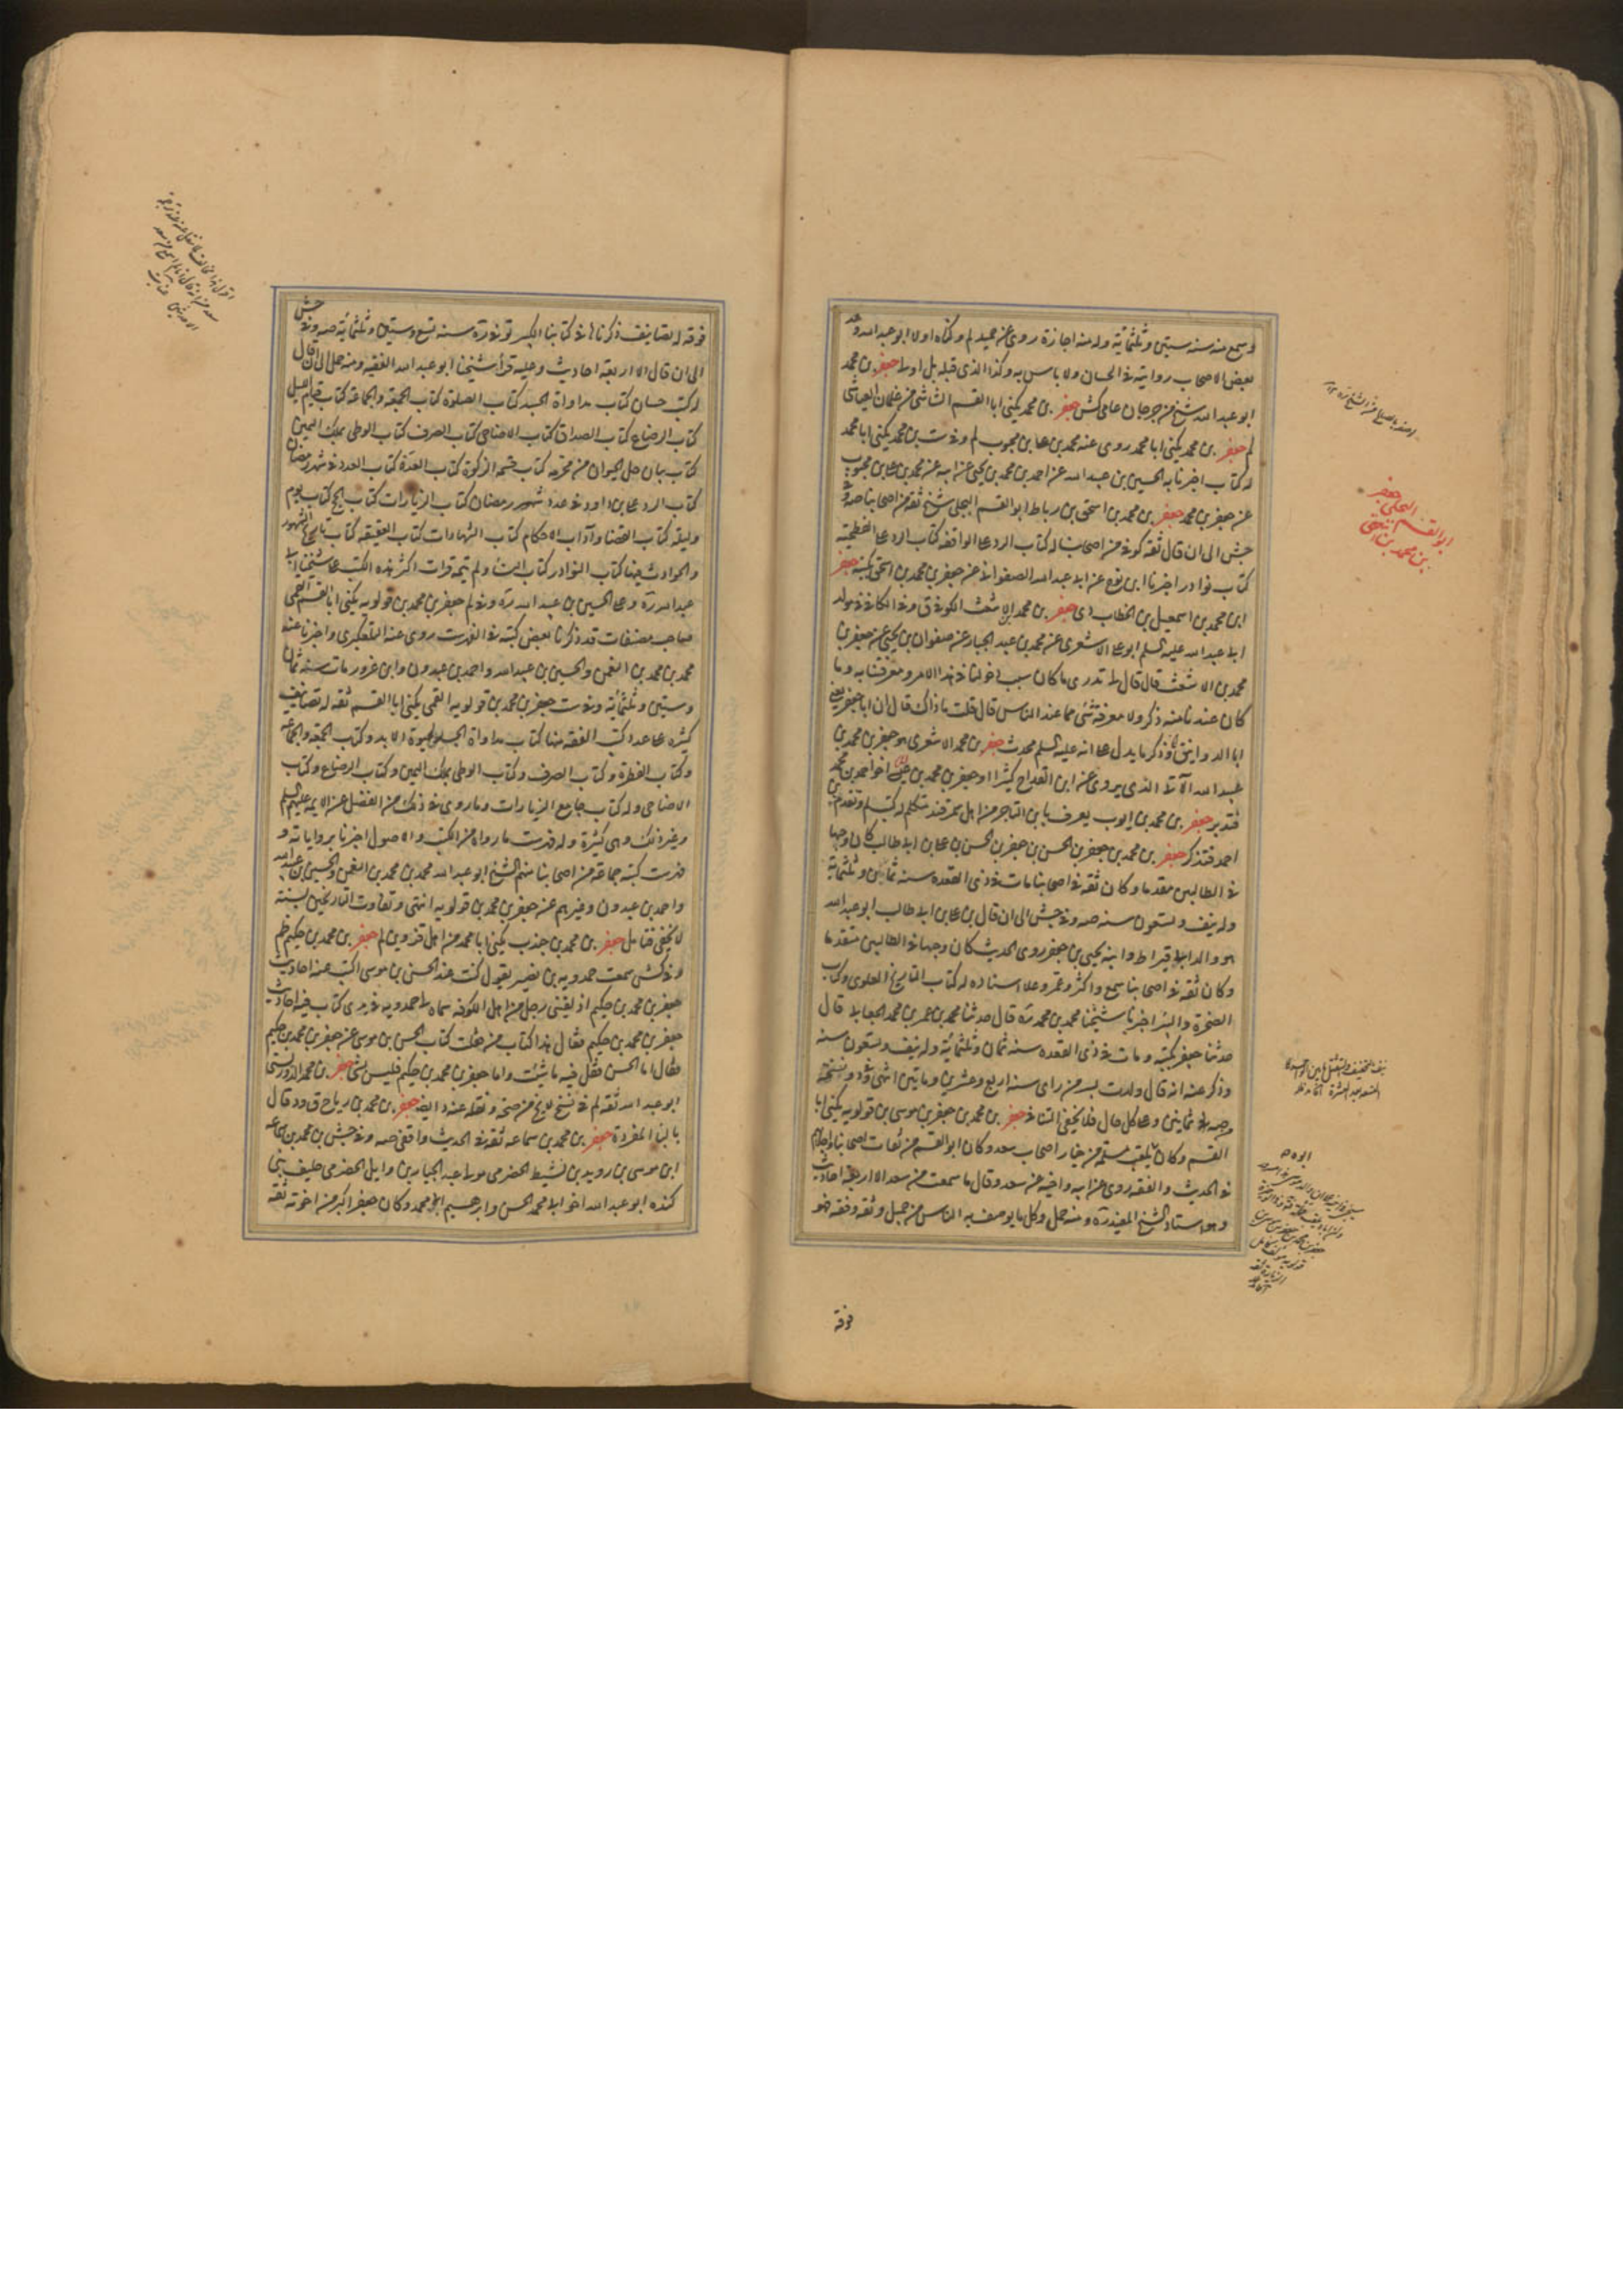 وسمع منه سنه ستين وثلثمائة وله منه اجازة روى عنه حميد لم وكناه اولا ابو عبد الله وعد
بعض الاصحاب روايته في الحسان ولا باس به وكذا الذي قبله بل اولا جعفر بن محمد
ابو عبد الله شيخ من جرجان عامى كش جعفر بن محمد يكنى ابا القسم الشاشى من غلمان العياشى
لم جعفر بن محمد يكنى ابا محمد روى عنه محمد بن على بن محبوب لم وفي ست بن محمد يكنى ابا محمد
له كتاب اخبرنا به الحسين بن عبد الله عن احمد بن محمد بن يحيى عن ابيه عن محمد بن على بن محبوب
عن جعفر بن محمد جعفر بن محمد بن اسحق بن رباط ابو القسم البجلى شيخ ثقه من اصحابنا صه وفي
جش الى ان قال ثقه كوفي من اصحابنا له كتاب الرد على الواقفه كتاب الرد على الفطحية
كتاب نوادر اخبرنا ابن نوح عن ابى عبد الله الصفوانى عن جعفر بن محمد بن اسحق بكتبه جعفر
ابن محمد بن اسمعيل بن الخطاب دى جعفر بن محمد بن الاشعث الكوفي ق وفي الكافي في مولد
ابى عبد الله عليه السلم ابو على الاشعرى عن محمد بن عبد الجبار عن صفوان بن يحيى عن جعفر بن
محمد بن الاشعث قال قال لى تدرى ما كان سبب دخولنا في هذا الامر ومعرفتنا به وما
كان عندنا منه ذكر ولا معرفة شئ مما عند الناس قال قلت ما ذاك قال ان ابا جعفر يعنى
ابا الدوانيق وذكر ما يدل على انه عليه السلم محدث جعفر بن محمد الاشعرى هو جعفر بن محمد بن
عبيد الله الآتى الذي يروى عن ابن القداح كثيرا او جعفر بن محمد بن عيسى اخو احمد بن محمد
فتدبر جعفر بن محمد بن ايوب يعرف بابن التاجر من اهل سمرقند متكلم له كتب لم وتقدم بن
احمد فتذكر جعفر بن محمد بن جعفر بن الحسن بن جعفر بن الحسن بن على بن ابى طالب كان وجها
في الطالبين مقدما وكان ثقه في اصحابنا مات في ذى القعده سنه ثمانين وثلثمائة
وله نيف وتسعون سنه صه وفي جش الى ان قال بن على بن ابى طالب ابو عبد الله
هو والد ابى قيراط وابنه يحيى بن جعفر روى الحديث كان وجها في الطالبين متقدما
وكان ثقه في اصحابنا سمع واكثر وعمر وعلا اسناده له كتاب التاريخ العلوى وكتاب
الصخرة والبئر اخبرنا شيخنا محمد بن محمد ره قال حدثنا محمد بن عمر بن محمد الجعابى قال
حدثنا جعفر بكتبه ومات في ذى القعده سنه ثمان وثلثمائة وله نيف وتسعون سنه
وذكر عنه انه قال ولدت بسر من راى سنه اربع وعشرين وماتين انتهى وفي د ونسخة
صه بدل ثمانين وعلى كل حال فلا يخفى التنافي جعفر بن محمد بن جعفر بن موسى بن قولويه يكنى ابا
القسم وكان يلقب مسلمة من خيار اصحاب سعد وكان ابو القسم من ثقات اصحابنا واجلائهم
في الحديث والفقه روى عن ابيه واخيه عن سعد وقال ما سمعت من سعد الا اربعة احاديث
وهو استاد الشيخ المفيد ره ومنه حمل وكل ما يوصف به الناس من جميل وثقه وفقه فهو
فوقه
ابو القسم البجلى جعفر
بن محمد بن اسحق
فوقه له تصانيف ذكرناها في كتابنا الكبير توفي ره سنه تسع وستين وثلثمائة صه وفي جش
الى ان قال الا اربعة احاديث وعليه قرأ شيخنا ابو عبد الله الفقيه ومنه حمل الى ان قال
له كتب حسان كتاب مداواة الجسد كتاب الصلوة كتاب الجمعة والجماعة كتاب قيام الليل
كتاب الرضاع كتاب الصداق كتاب الاضاحى كتاب الصرف كتاب الوطى بملك اليمين
كتاب بيان حل الحيوان من محرمه كتاب قسمه الزكوة كتاب العدد كتاب العدد في شهر رمضان
كتاب الرد على بن داود في عدد شهر رمضان كتاب الزيارات كتاب الحج كتاب يوم
وليلة كتاب القضا وآداب الاحكام كتاب الشهادات كتاب العقيقه كتاب تاريخ الشهور
والحوادث فيها كتاب النوادر كتاب النسا ولم يتمه قرات اكثر هذه الكتب على شيخنا ابى
عبد الله ره وعلى الحسين بن عبيد الله ره وفي لم جعفر بن محمد بن قولويه يكنى ابا القسم القمى
صاحب مصنفات قد ذكرنا بعض كتبه في الفهرست روى عنه التلعكبرى واخبرنا عنه
محمد بن محمد بن النعمن والحسين بن عبيد الله واحمد بن عبدون وابن غرور مات سنه ثمان
وستين وثلثمائة وفي ست جعفر بن محمد بن قولويه القمى يكنى ابا القسم ثقه له تصانيف
كثيره على عدد كتب الفقه منها كتاب مداواة الجسد لحيوة الابد وكتاب الجمعه والجماعه
وكتاب الفطرة وكتاب الصرف وكتاب الوطى بملك اليمين وكتاب الرضاع وكتاب
الاضاحى وله كتاب جامع الزيارات وما روى في ذلك من الفضل عن الائمه عليهم السلم
وغير ذلك وهى كثيرة وله فهرست ما رواه من الكتب والاصول اخبرنا برواياته و
فهرست كتبه جماعه من اصحابنا منهم الشيخ ابو عبد الله محمد بن محمد بن النعمن والحسين بن عبيد الله
واحمد بن عبدون وغيرهم عن جعفر بن محمد بن قولويه انتهى وتفاوت التاريخين بسنه
لا يخفى فتامل جعفر بن محمد بن جندب يكنى ابا محمد من اهل قزوين لم جعفر بن محمد بن حكيم ظم
وفي كش سمعت حمدويه بن نصير يقول كنت عند الحسن بن موسى اكتب عنه احاديث
جعفر بن محمد بن حكيم اذ لقينى رجل من اهل الكوفه سماه لى حمدويه وفي يدى كتاب فيه احاديث
جعفر بن محمد بن حكيم فقال هذا كتاب من قلت كتاب الحسن بن موسى عن جعفر بن محمد بن حكيم
فقال اما الحسن فقل فيه ما شئت واما جعفر بن محمد بن حكيم فليس بشئ جعفر بن محمد الدوريستى
ابو عبد الله ثقه لم في نسخ ونقله عنه د ايضا جعفر بن محمد بن رباح ق ود قال
بالبا المفردة جعفر بن محمد بن سماعه ثقه في الحديث واقفى صه وفي جش بن محمد بن سماعه
ابن موسى بن رويد بن نشيط الحضرمى مولى عبد الجبار بن وايل الحضرمى حليف بنى
كنده ابو عبد الله اخو ابى محمد الحسن وابرهيم ابنى محمد وكان جعفر اكبر من اخوته ثقه